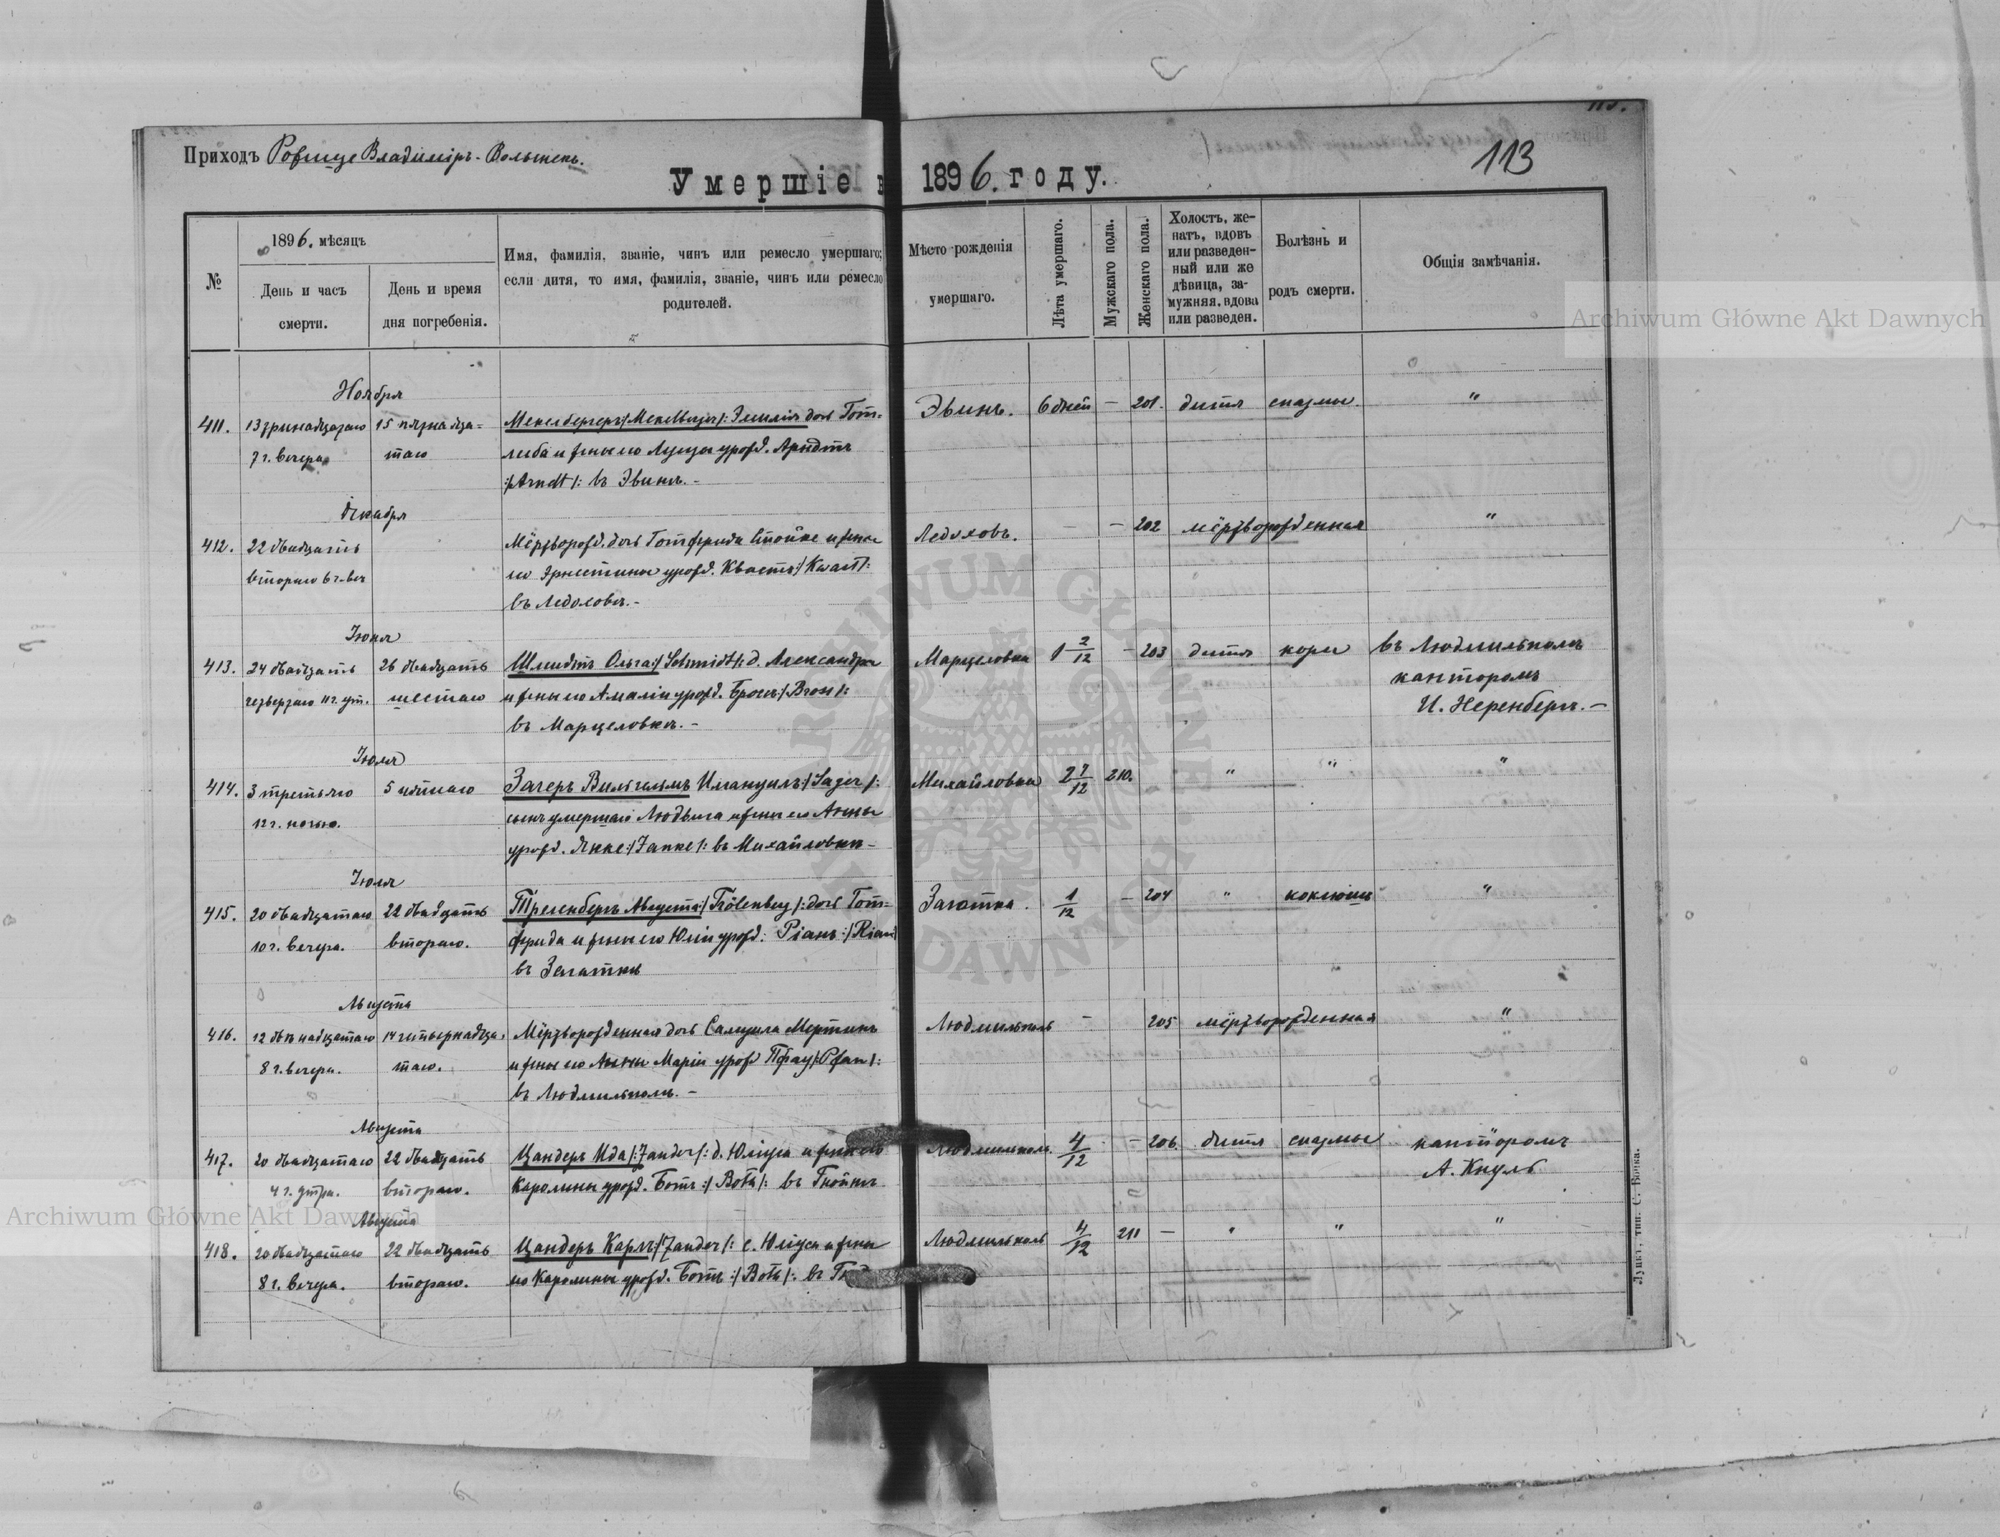 113
Приходъ Ровище Владиміръ-Волынск.
Умершіе в 1896. году.
№
1896. мѣсяцъ
День и часъ
смерти.
День и время
дня погребенія.
Имя, фамилія, званіе, чинъ или ремесло умершаго;
если дитя, то имя, фамилія, званіе, чинъ или ремесло
родителей.
Мѣсто рожденія
умершаго.
Лѣта умершаго.
Мужскаго пола.
Женскаго пола.
Холостъ, же-
натъ, вдовъ
или разведен-
ный или же
дѣвица, за-
мужняя, вдова
или разведен.
Болѣзнь и
родъ смерти.
Общія замѣчанія.
Ноября
411. 13 тринадцатаго 15 пятнадца- Эмилія дочь Гот- Эвинъ. 6 дней — 201. дитя спазмы. "
7 г. вечера таго либа и жены его Луизы урожд. Арндтъ
:/Arndt/: въ Эвинъ.-
Декабря
412. 22 двадцать Мёртворожд. дочь Готфрида и жены Ледоховъ. — — 202 мёртворожденная "
втораго 6 г. веч его Эрнестины урожд. Квастъ:/Kwast/:
въ Ледоховъ.-
Іюня
413. 24 двадцать 26 двадцать Шмидтъ Ольга:/Schmidt/: д. Александра Марцеловка 1 2/12 — 203 дитя кори въ Людмильполь
четвертаго 11 г. ут. шестаго и жены его Амаліи урожд. Бросъ:/Bross/: канторомъ
въ Марцеловкъ.- И. Неренбергъ.-
Іюля
414. 3 третьяго 5 пятаго Загеръ Вильгельмъ Имануилъ:/Sager/: Михайловка 2 7/12 210. " " "
12 г. ночью. сынъ умершаго Людвига и жены его Анны
урожд. Янке:/Janke/: въ Михайловкъ-
Іюля
415. 20 двадцатаго 22 двадцать Августа: дочь Гот- Загатка. 1/12 — 204 " коклюшъ "
10 г. вечера. втораго. фрида и жены его Юліи урожд: Ріанъ:/Rian/
въ Загаткъ
Августа
416. 12 двѣнадцатаго 14 четырнадца- Мёртворожденная дочь Самуила Мертинъ Людмильполь — 205 мёртворожденная "
8 г. вечера. таго. и жены его Анны Маріи урожд Пфау:/Pfau/:
въ Людмильполь.-
Августа
417. 20 двадцатаго 22 двадцать Цандеръ Ида/:Zander/: д. Юліуса и жены его Людмильполь. 4/12 — 206. дитя спазмы канторомъ
4 г. утра. втораго. Каролины урожд. Ботъ:/Both/: въ Гнойнъ. А. Кнуль
Августа
418. 20 двадцатаго 22 двадцать Цандеръ Карлъ:/Zander/: с. Юліуса и жены Людмильполь 4/12 211 — " " "
8 г. вечера. втораго. его Каролины урожд. Ботъ:/Both/: въ
Луцкъ. тип. С. Бойка.
Archiwum Główne Akt Dawnych
Archiwum Główne Akt Dawnych
ARCHIWUM GŁÓWNE AKT DAWNYCH